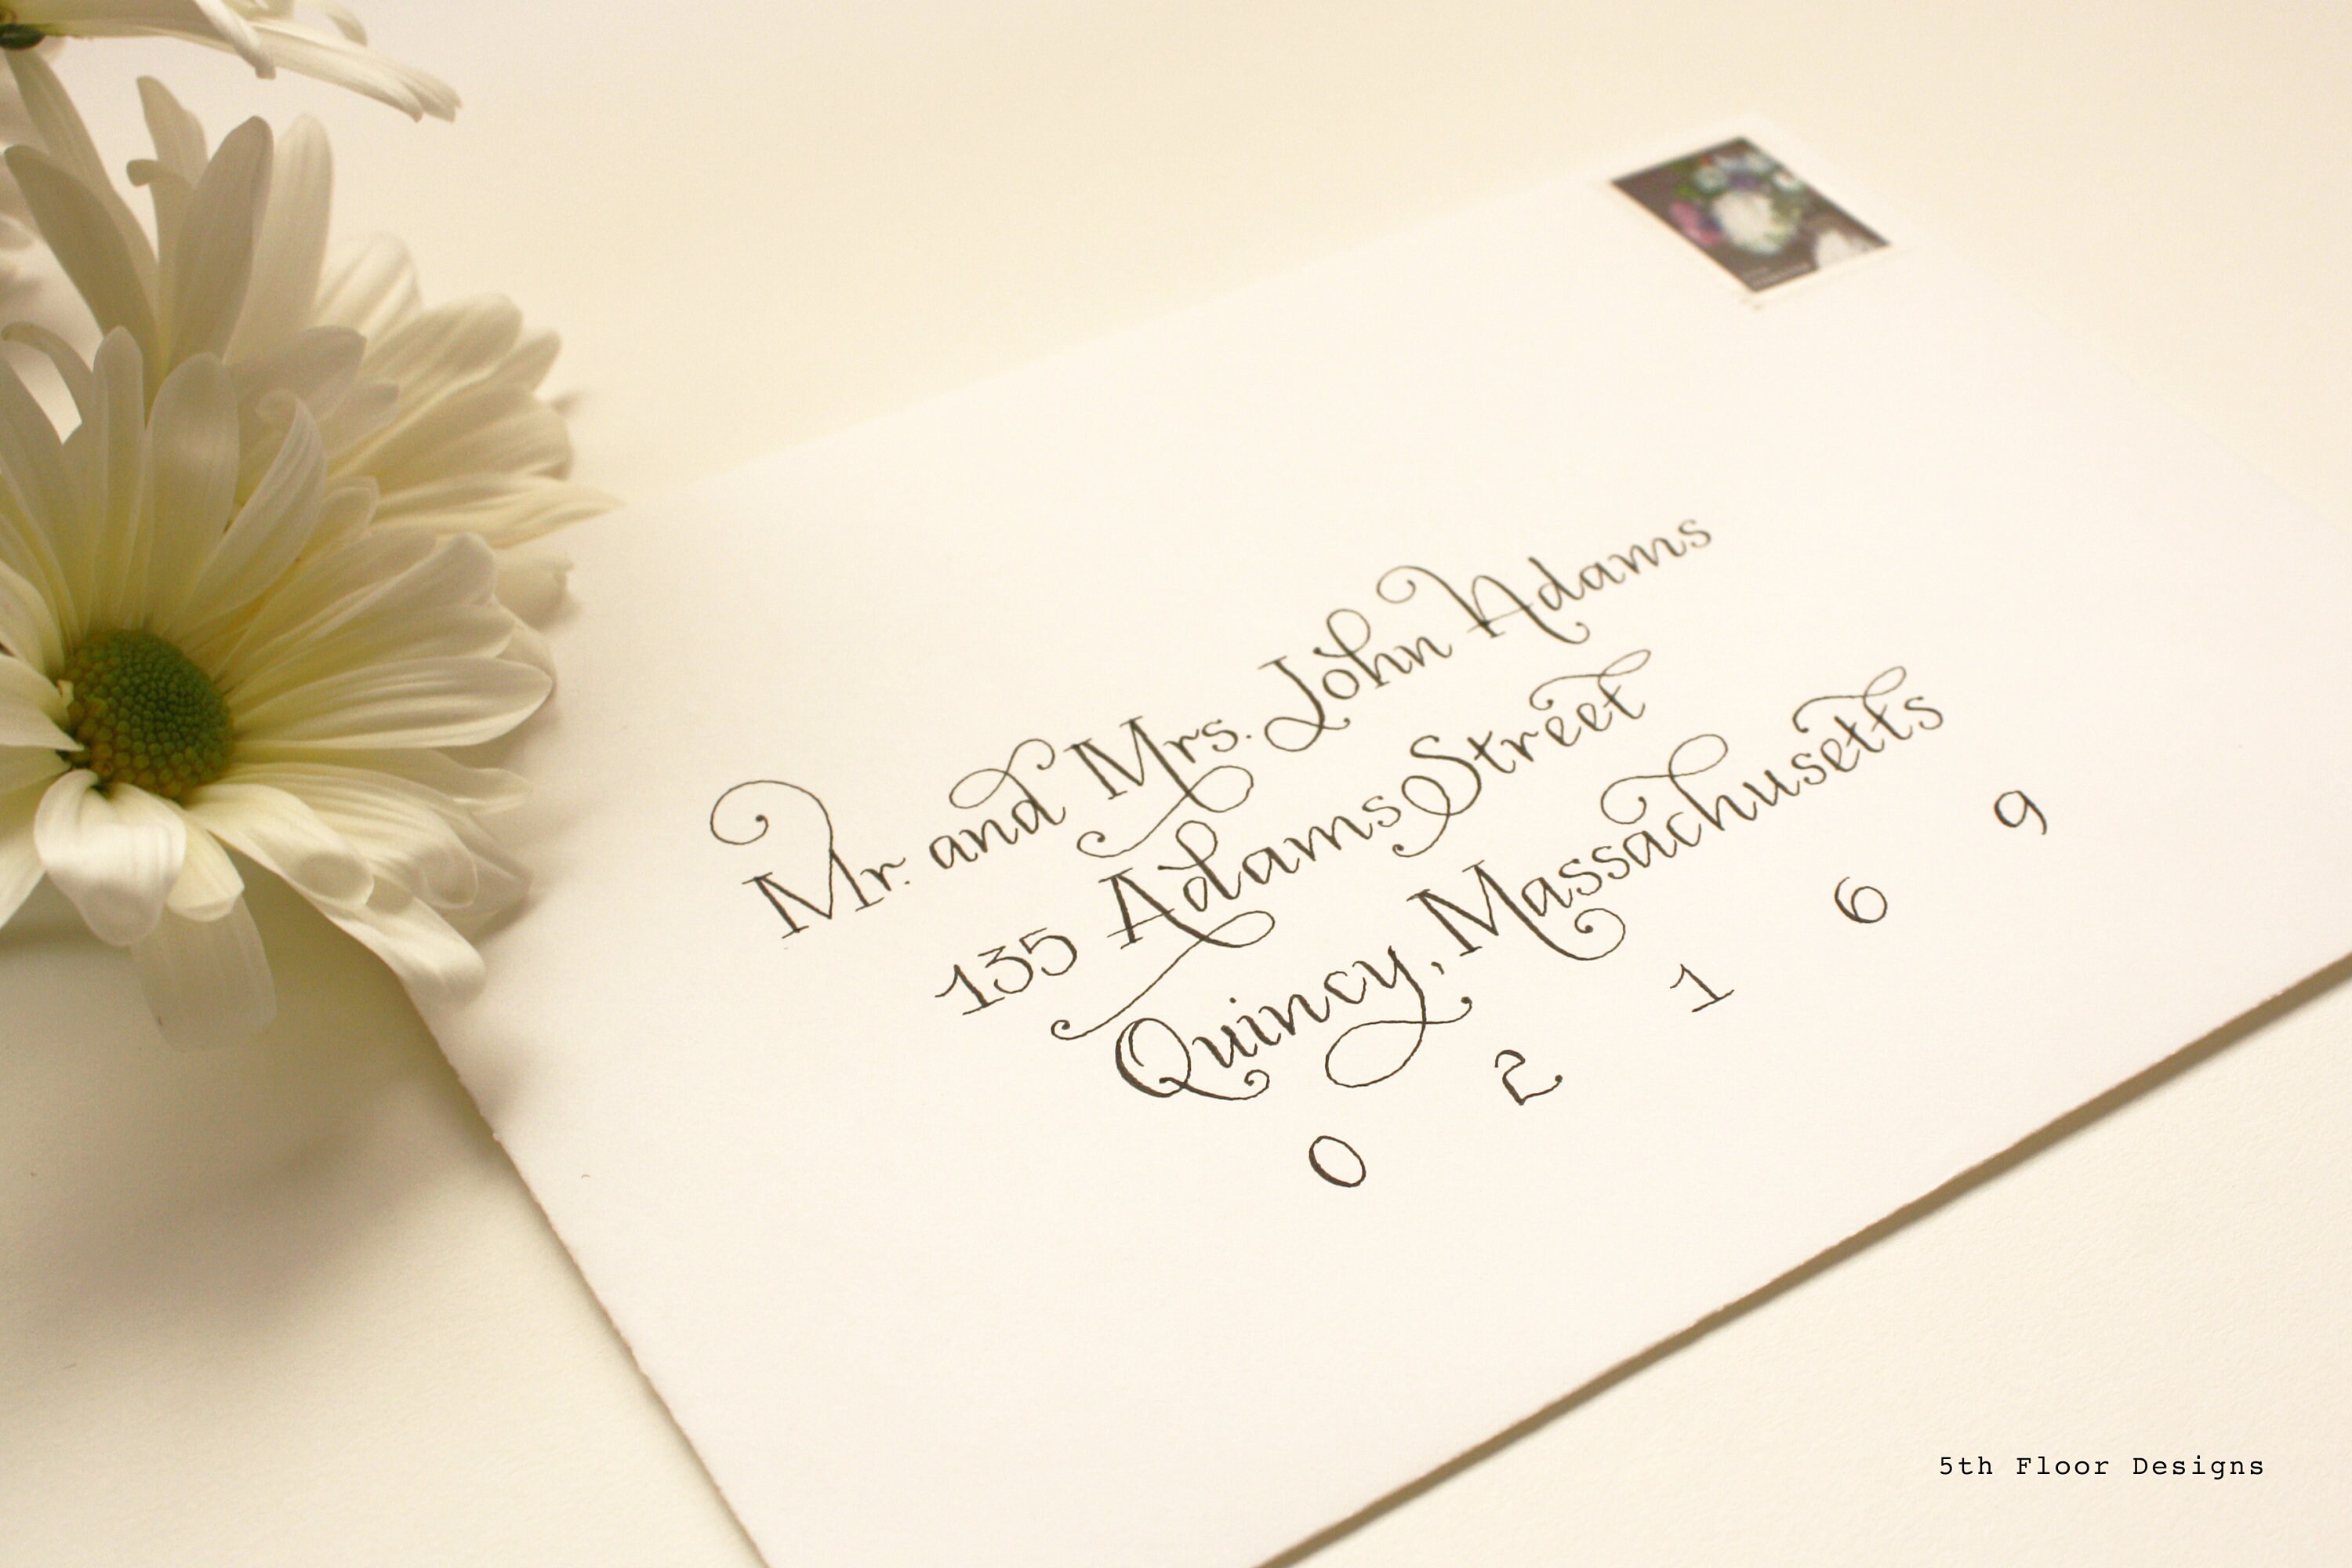 Mr. and Mrs. John Adams
135 Adams Street
Quincy, Massachusetts
0 2 1 6 9
5th Floor Designs